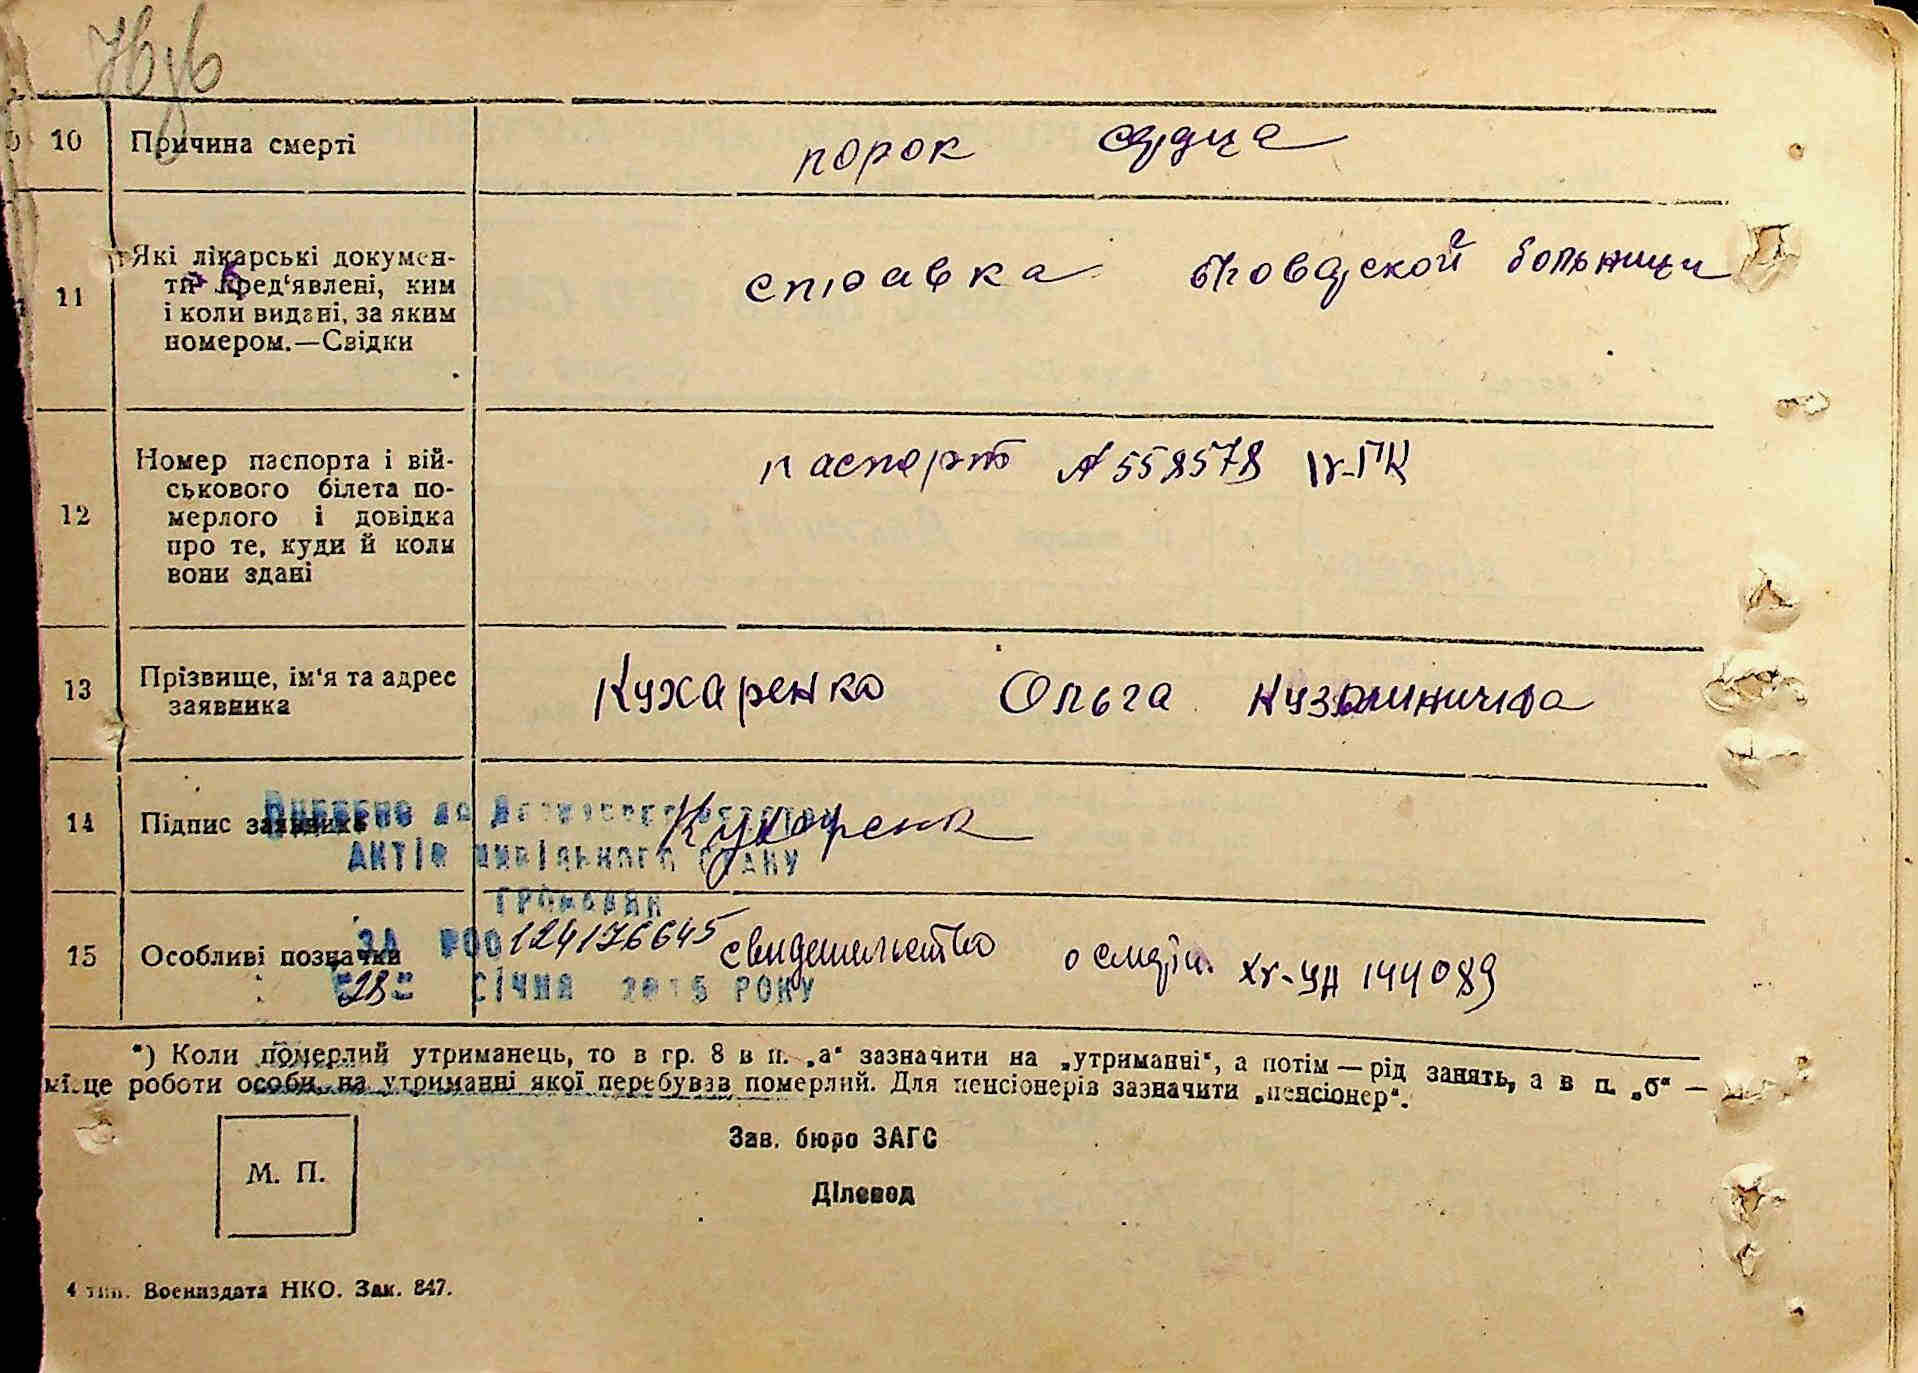 10 Причина смерті порок сердца
11 Які лікарські докумен-
ти пред‘явлені, ким
і коли видані, за яким
номером.—Свідки
справка больницы
12 Номер паспорта і вій-
ськового білета по-
мерлого і довідка
про те, куди й коли
вони здані
паспорт № 558578 IV-ПК
13 Прізвище, ім‘я та адрес
заявника
Кухаренко Ольга Кузьминична
14 Підпис заявника Кухаренк
Внесено до Державного реєстру
актів цивільного стану
громадян
15 Особливі позначки
свидетельство о смерти XV-УД 144089
ЗА №00124176645
"28" СІЧНЯ 2015 РОКУ
*) Коли померлий утриманець, то в гр. 8 в п. „а“ зазначити на „утриманні“, а потім — рід занять, а в п. „б“ —
місце роботи особи, на утриманні якої перебував померлий. Для пенсіонерів зазначити „пенсіонер“.
Зав. бюро ЗАГС
М. П.
Діловод
4 тип. Воениздата НКО. Зак. 847.